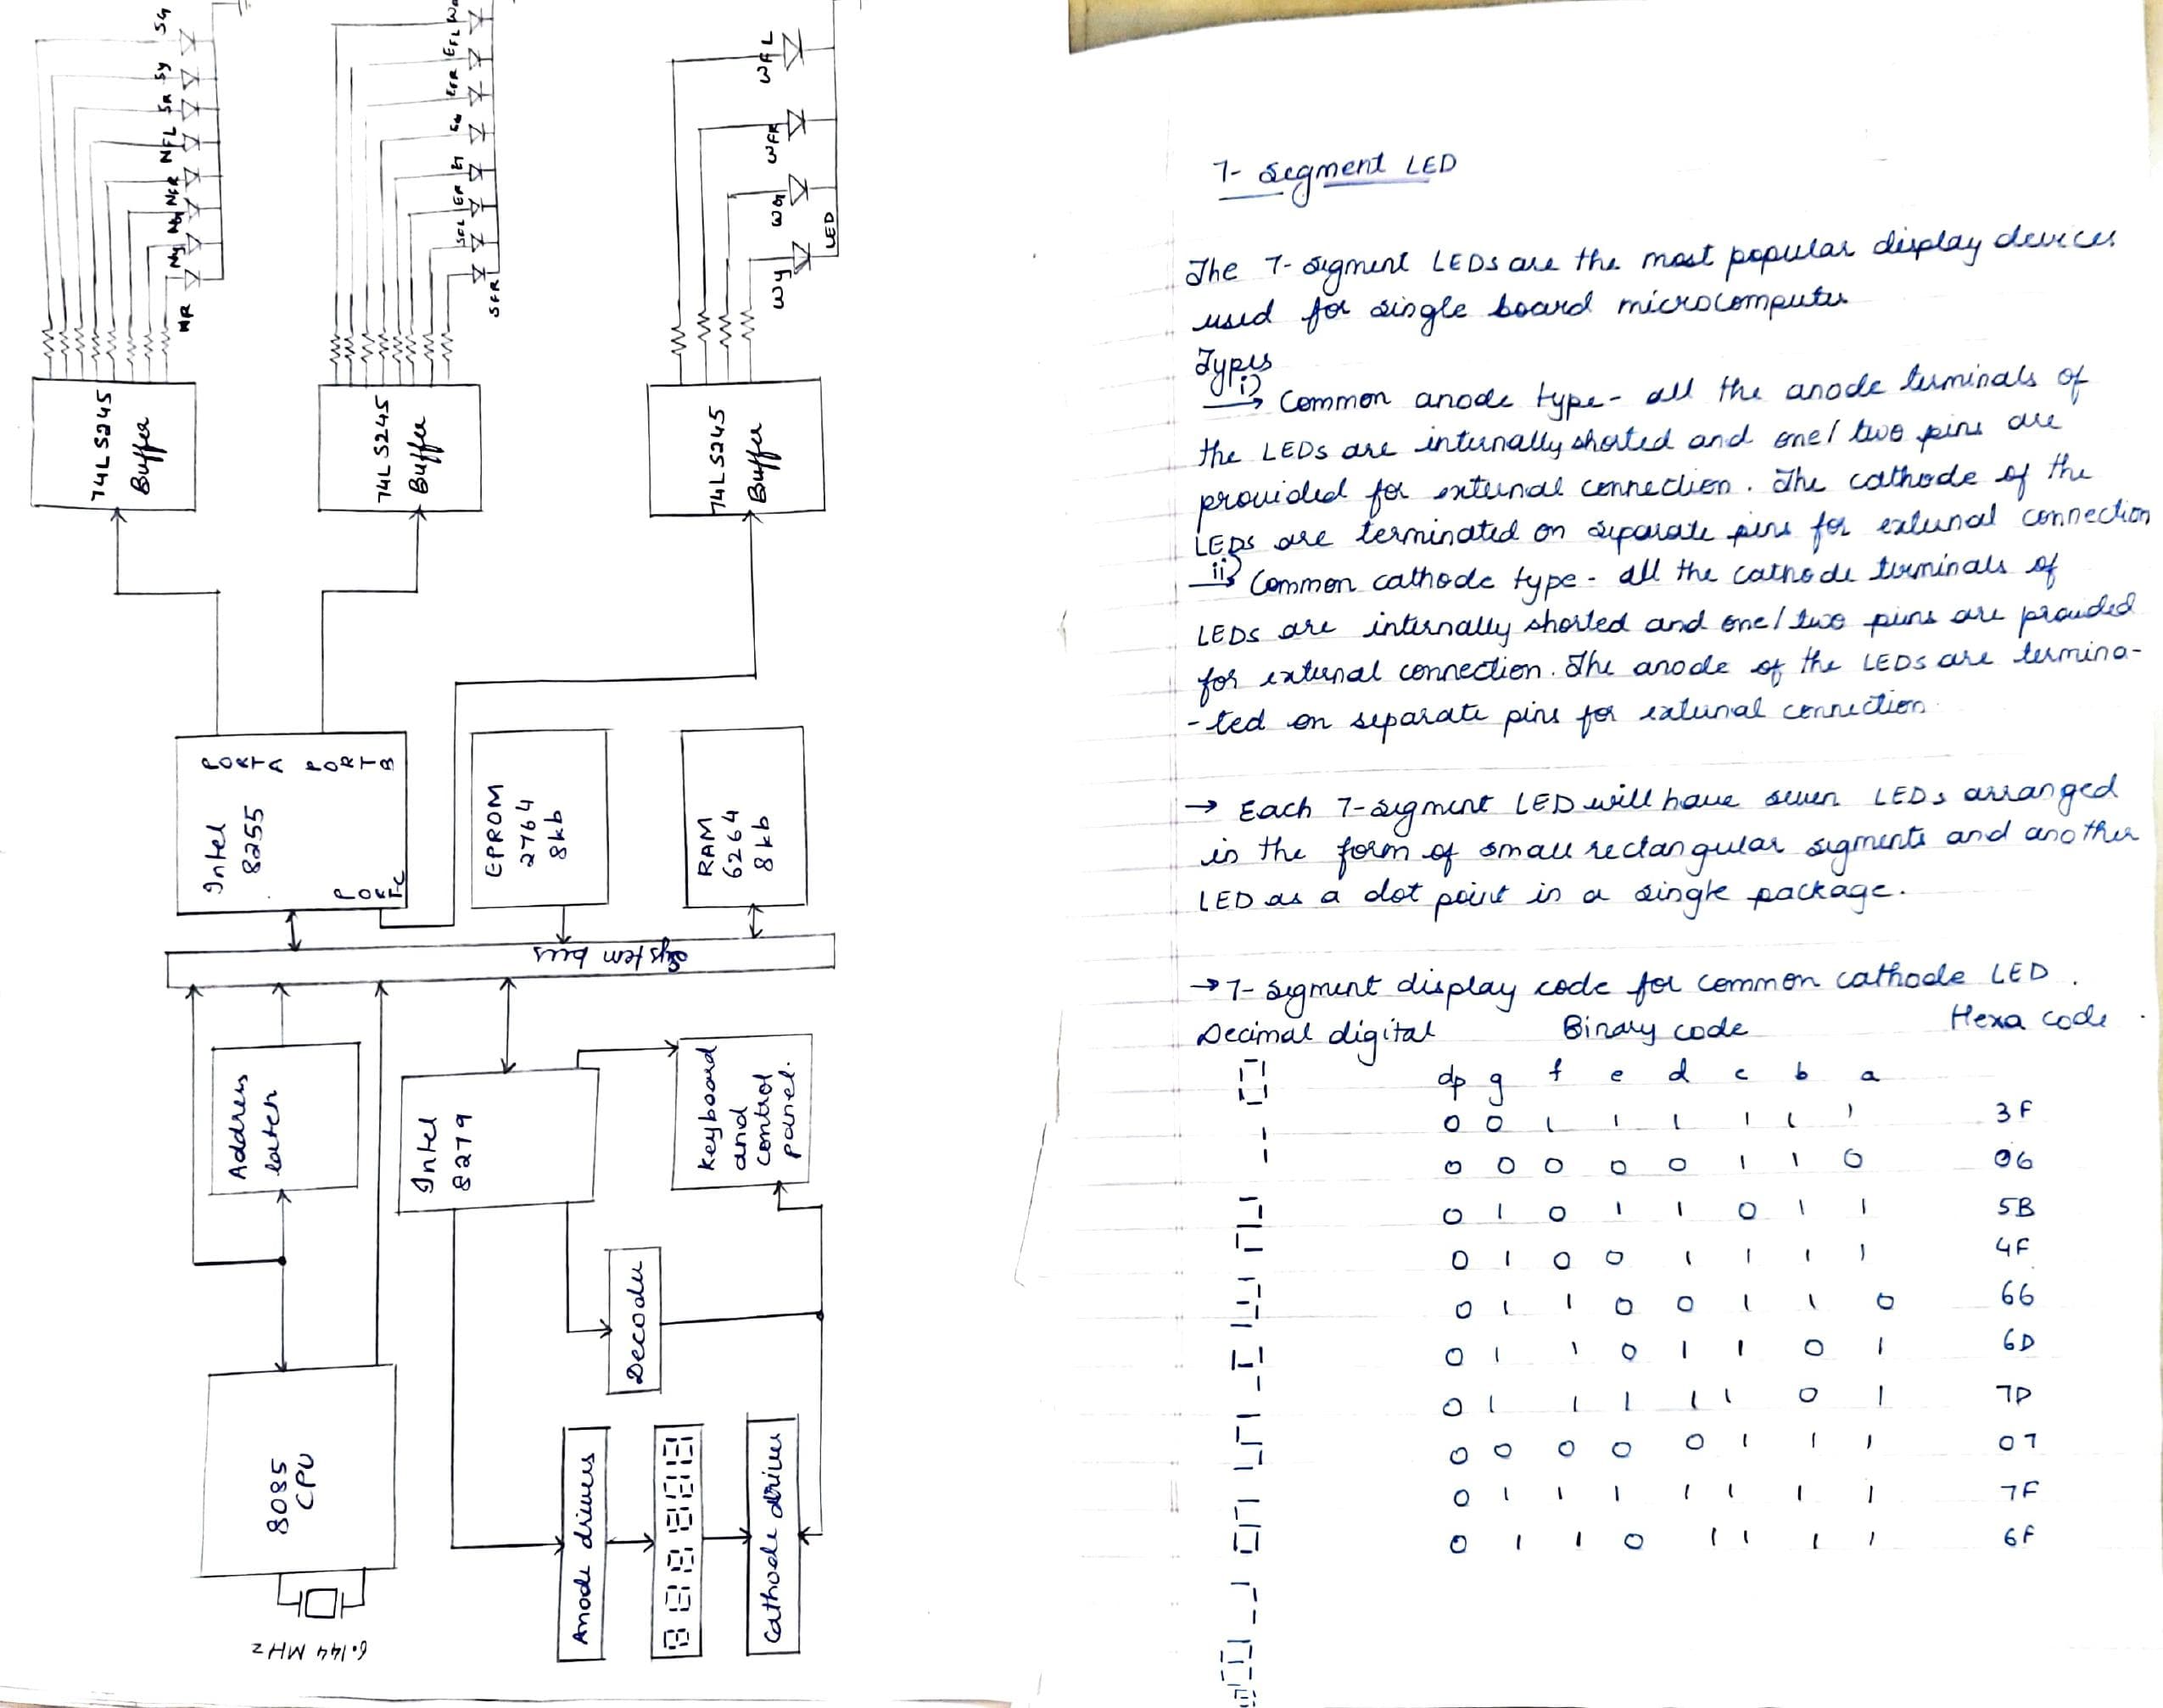 SG
Sy
SR
NFL
NFR
NG
Ny
NR
74LS245
Buffer
EFL
EFR
EG
Ey
ER
SFL
SFR
74LS245
Buffer
WFL
WFR
WG
Wy
LED
74LS245
Buffer
PORT A
PORT B
Intel
8255
PORTC
EPROM
2764
8kb
RAM
6264
8kb
System bus
Address
latch
Intel
8279
Keyboard
and
control
panel.
Decoder
8085
CPU
6.144 MHz
Anode drivers
Cathode driver
7- Segment LED
The 7-segment LEDs are the most popular display devices
used for single board microcomputer
Types
i) → Common anode type- all the anode terminals of
the LEDs are internally shorted and one/ two pins are
provided for external connection. The cathode of the
LEDs are terminated on separate pins for external connection
ii) Common cathode type- all the cathode terminals of
LEDs are internally shorted and one/two pins are provided
for external connection. The anode of the LEDs are termina-
-ted on separate pins for external connection.
→ Each 7-segment LED will have seven LEDs arranged
in the form of small rectangular segments and another
LED as a dot point in a single package.
→ 7- segment display code for common cathode LED.
Decimal digital Binary code Hexa code.
dp g f e d c b a
0 0 1 1 1 1 1 1 3F
0 0 0 0 0 1 1 0 06
0 1 0 1 1 0 1 1 5B
0 1 0 0 1 1 1 1 4F
0 1 1 0 0 1 1 0 66
0 1 1 0 1 1 0 1 6D
0 1 1 1 1 1 0 1 7D
0 0 0 0 0 1 1 1 07
0 1 1 1 1 1 1 1 7F
0 1 1 0 1 1 1 1 6F